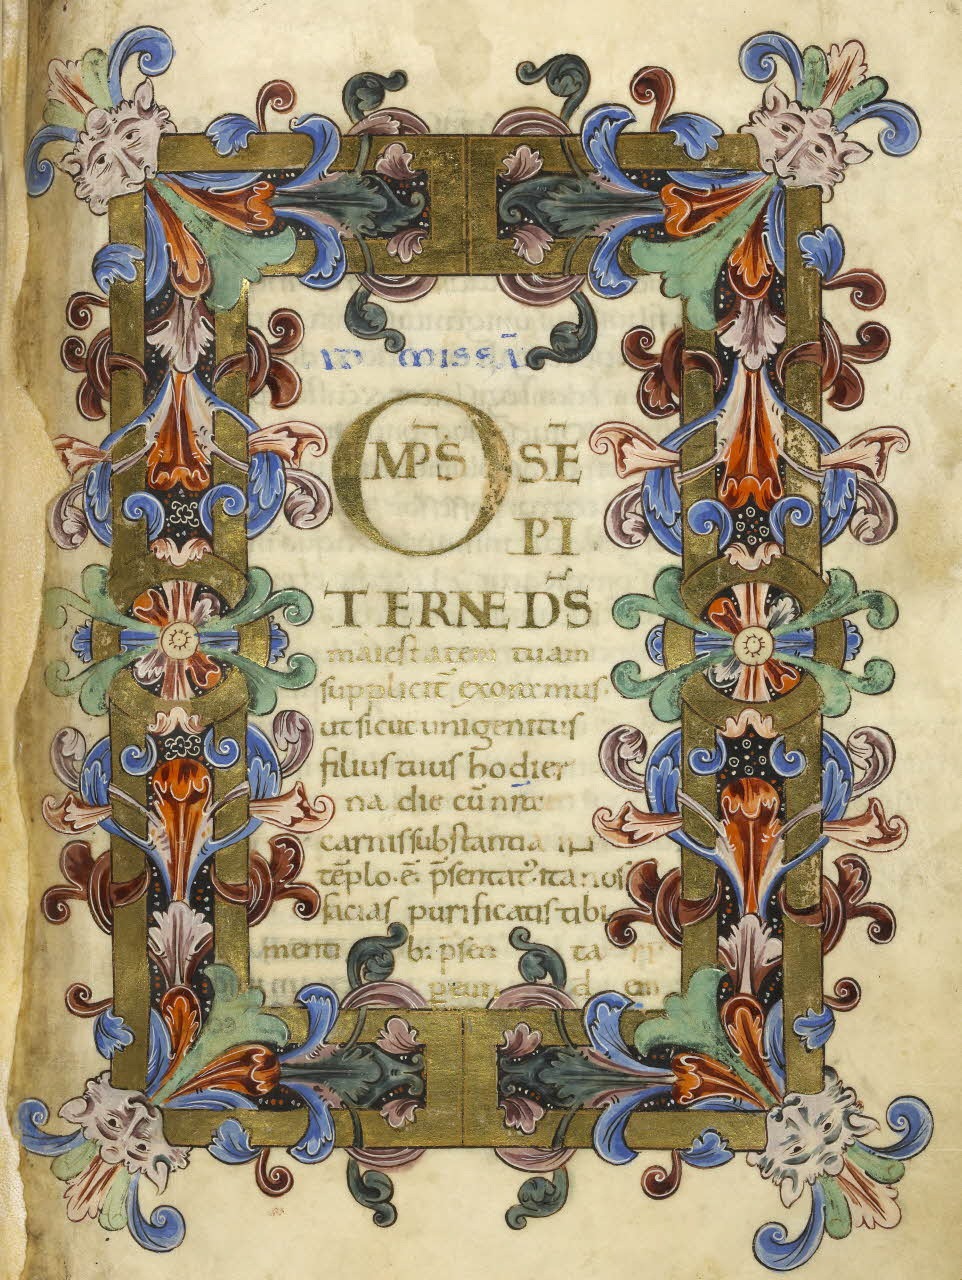 AD MISSĀ
OMP̄S SĒ
PI
TERNE D̄S
maiestatem tuam
supplicit̄ exoramus·
ut sicut unigenitus
filius tuus hodier
na die cū nr̄e
carnis substantia in
tēplo· ē· p̄sentat᷒· ita nos
facias purificatis tibi
menti b: p̄sen ta ri